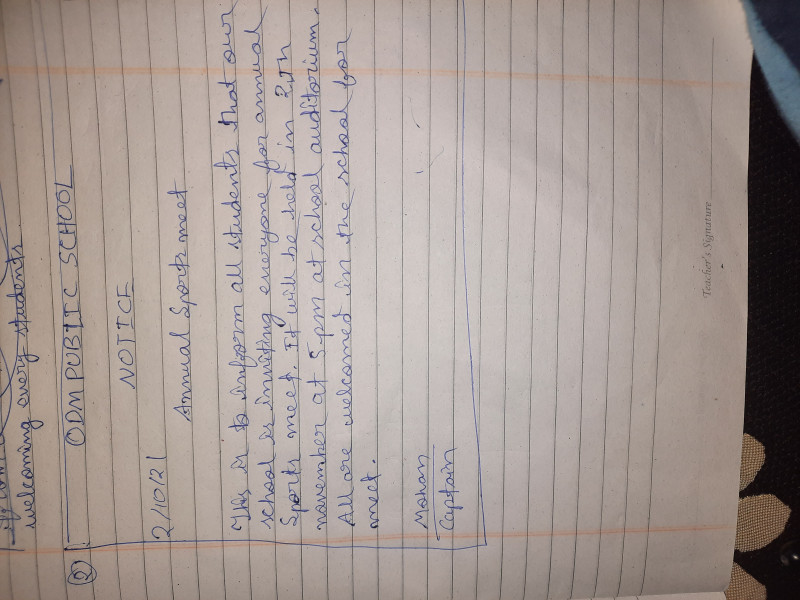 welcoming every students
2
ODM PUBLIC SCHOOL
NOTICE
2/10/21
Annual Sports meet
This is to inform all students that our
school is inviting everyone for annual
Sports meet. It will be held in 2th
november at 5 pm at school auditorium.
All are welcomed in the school for
meet.
Mohan
Captain
Teacher's Signature